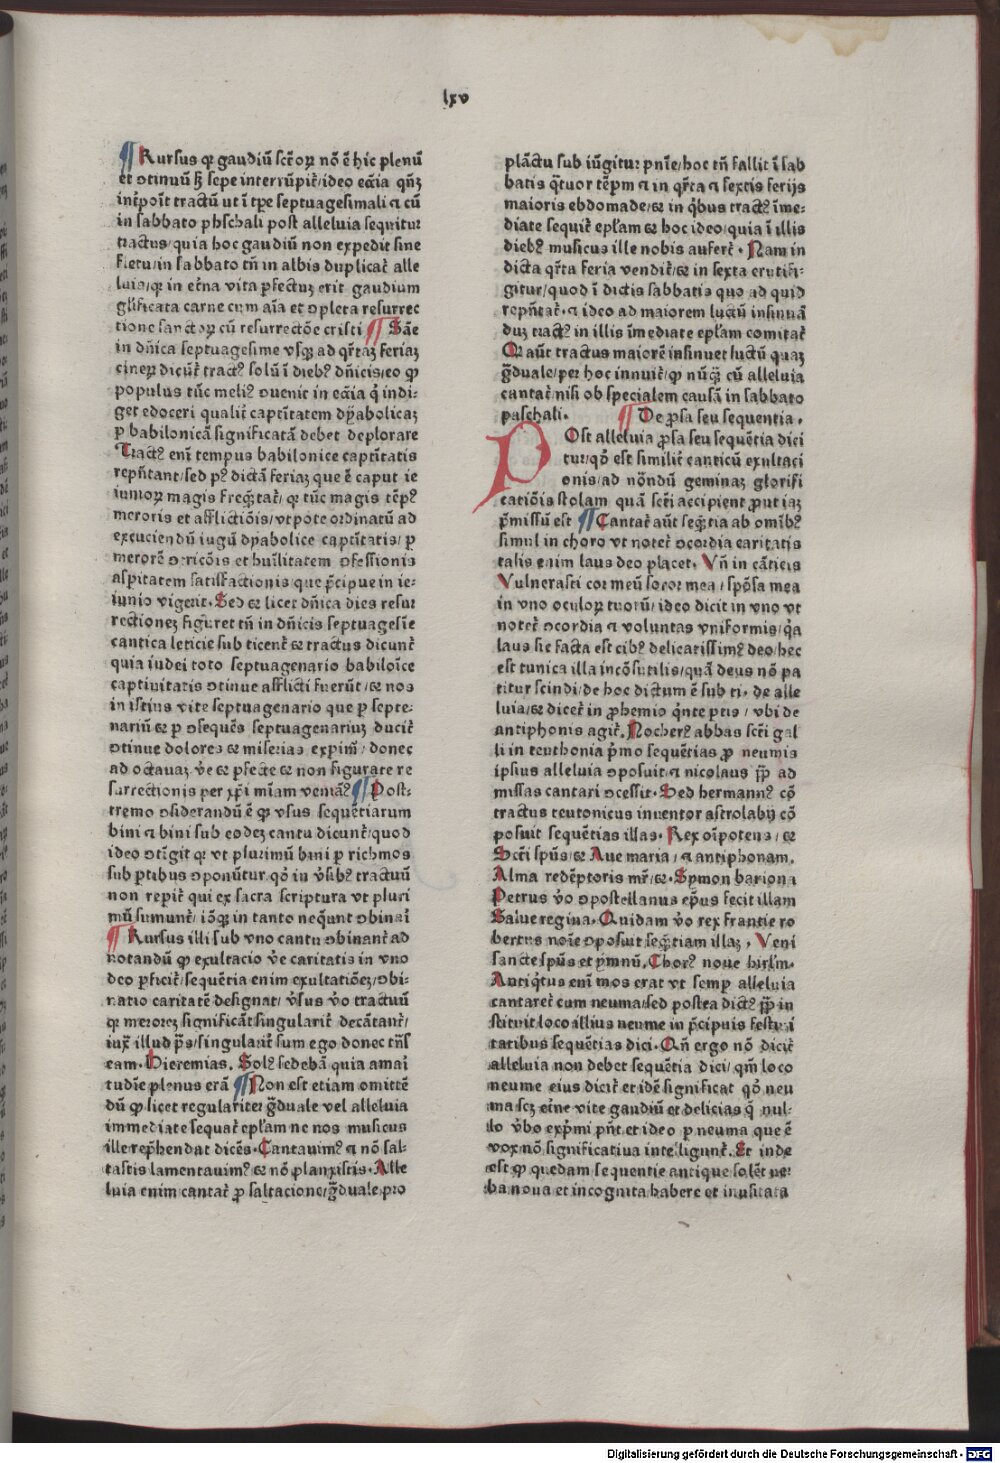 lxv
¶ Rursus qꝛ gaudiū sctōꝝ nō ē hic plenū
et ↄtinuū sꝫ sepe interrūpit᷑/ideo ecc̄ia qn̄qꝫ
int̄poīt tractū ut ī tp̄e septuagesimali ⁊ cū
in sabbato phschali post alleluia sequitur
tractus/quia hoc gaudiū non expedit sine
fletu/in sabbato tn̄ in albis duplicat᷑ alle
luia/qꝛ in etn̄a vita ꝑfectuꝫ erit gaudium
gl̄ificata carne cum aīa et ↄpleta resurrec
tione sanctoꝝ cū resurrectōe cristi ¶ Sāe
in dn̄ica septuagesime vsqꝫ ad qr̄taꝫ feriaꝫ
cineꝝ dicūt᷑ tractꝰ solū ī diebꝰ dn̄icis/eo ꝙ
populus tūc meliꝰ ↄuenit in ecc̄ia q̇ indi-
get edoceri qualit᷑ captītatem dyabolicaꝫ
ꝑ babilonicā significatā debet deplorare
Tractꝰ eni᷑ tempus babilonice captītatis
repn̄tant/sed pꝰ dictā feriaꝫ que ē caput ie
iunioꝝ magis freqn̄tat᷑/qꝛ tūc magis tēpꝰ
meroris et afflictiōis/vtpote ordinatū ad
execuciendū iugū dyabolice captītatis/ꝑ
merorē ↄtricōis et huīlitatem ↄfessionis
aspitatem satisfactionis que p̄cipue in ie-
iunio vigent. Sed ⁊ licet dn̄ica dies resur
rectioneꝫ figuret tn̄ in dn̄icis septuagesīe
cantica leticie sub ticent᷑ ⁊ tractus dicunt᷑
quia iudei toto septuagenario babiloīce
captiuitatis ↄtinue afflicti fuerūt/⁊ nos
in istius vite septuagenario que ꝑ septe-
nariū ⁊ ꝑ ↄsequēs septuagenariuꝫ ducit᷑
ↄtinue dolores ⁊ miserias exprim̄/donec
ad octauaꝫ v̄e ⁊ ꝑfecte ⁊ non figurate re
surrectionis per xp̄i mīam veniāꝰ ¶ Post-
tremo ↄsiderandū ē ꝙ vsus sequētiarum
bini ⁊ bini sub eodeꝫ cantu dicunt᷑/quod
ideo ↄtīgit qꝛ vt plurimū bini ꝑ richmos
sub ꝑtibus ↄponūtur. qō in v̄sibꝰ tractuū
non reꝑit᷑ qui ex sacra scriptura vt pluri
mū sumunt᷑/iōqꝫ in tanto neq̄unt ↄbinari
¶ Rursus illi sub vno cantu ↄbinant᷑ ad
notandū ꝙ exultacio v̄e caritatis in vno
deo ꝑficit᷑/sequētia enim exultatiōeꝫ/ↄbi-
natio caritatē designat/v̄sus v̄o tractuū
qꝛ meroreꝫ significāt singularit᷑ decātant᷑/
iuxͭ illud pˢ/singularit᷑ sum ego donec tn̄s
eam. Hieremias. Solꝰ sedebā quia amai᷑
tudīe plenus erā ¶ Non est etiam omittē
dū ꝙ licet regulariter ḡduale vel alleluia
immediate sequat᷑ epl̄am ne nos musicus
ille rep̄hendat dicēs. Cantauimꝰ ⁊ nō sal-
tastis lamentauimꝰ ⁊ nō planxistis. Alle
luia enim cantat᷑ ꝓ saltacione/ḡduale pro
plāctu sub iūgitur pn̄ie/hoc tn̄ fallit ī sab
batis q̄tuor tēpm ⁊ in qr̄ta ⁊ sextis ferijs
maioris ebdomade/⁊ in q̇bus tractꝰ īme-
diate sequit᷑ epl̄am ⁊ hoc ideo/quia ī illis
diebꝰ musicus ille nobis aufert᷑. Nam in
dicta qr̄ta feria vendit᷑/⁊ in sexta crucifi-
gitur/quod ī dictis sabbatis quo ad quid
repn̄tat᷑ ⁊ ideo ad maiorem luctū insinuā
duꝫ tractꝰ in illis īmediate epl̄am comitat᷑
Qꝛ aūt tractus maiorē insinuet luctū quaꝫ
ḡduale/per hoc innuit᷑/ꝙ nūq̄ꝫ cū alleluia
cantat᷑ nisi ob specialem causā in sabbato
paschali. ¶ De ꝓsa seu sequentia.
POst alleluia ꝓsa seu sequētia dici
tur/qō est similit᷑ canticū exultaci
onis/ad nōndū geminaꝫ glorifi
catiōis stolam quā scti᷑ accipient ꝓut iaꝫ
p̄missū est ¶ Cantat᷑ aūt seq̄ntia ab omībꝰ
simul in choro vt notet᷑ ↄcordia caritatis
talis enim laus deo placet. Vn̄ in cāticis
Vulnerasti cor meū soror mea/spōsa mea
in vno oculoꝝ tuoꝝ/ideo dicit in vno vt
notet᷑ ↄcordia ⁊ voluntas vniformis/q̄a
laus sic facta est cibꝰ delicatissimꝰ deo/hec
est tunica illa incōsutilis/quā deus nō pa
titur scindi/de hoc dictum ē sub ti. de alle
luia/⁊ dicet᷑ in ꝓhemio q̇nte ptis/vbi de
antiphonis agit᷑. Nocherꝰ abbas scti᷑ gal
li in teuthonia p̄mo sequētias ꝓ neumis
ipsius alleluia ↄposuit/⁊ nicolaus pp̄ ad
missas cantari ↄcessit. Sed hermannꝰ cō
tractus teutonicus inuentor astrolabij cō
posuit sequētias illas. Rex oīpotens/⁊
Scti᷑ spūs/⁊ Aue maria/⁊ antiphonam.
Alma redēptoris mr̄/⁊. Symon bariona
Petrus v̄o ↄpostellanus ep̄us fecit illam
Salue regina. Quidam v̄o rex francie ro
bertus noīe ↄposuit seq̄ntiam illaꝫ. Veni
sancte spūs et ymnū. Chorꝰ noue hirl̄m.
Antiq̇tus eni᷑ mos erat vt semꝑ alleluia
cantaret᷑ cum neuma/sed postea dictꝰ pp̄ in
stituit loco illius neume in p̄cipuis festiui
tatibus sequētias dici. Qn̄ ergo nō dicit᷑
alleluia non debet sequētia dici/qm̄ loco
neume eius dicit᷑ et idē significat qō neu
ma scꝫ et̄ne vite gaudiū et delicias q̄ nul-
lo v̄bo exp̄mi pn̄t et ideo ꝑ neuma que ē
vox nō significatiua intelligunt᷑. Et inde
est ꝙ quedam sequentie antique solēt ver
ba noua et incognita habere et inusitata
Digitalisierung gefördert durch die Deutsche Forschungsgemeinschaft - DFG